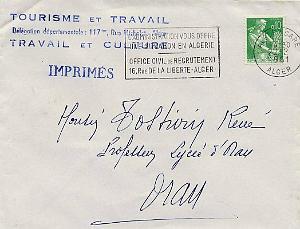 TOURISME et TRAVAIL
Délégation départementale: 117 ter, Rue
TRAVAIL et CULTURE
IMPRIMÉS
L'ADMINISTRATION VOUS OFFRE
UNE SITUATION EN ALGERIE
OFFICE CIVIL DE RECRUTEMENT
16, RUE DE LA LIBERTE-ALGER
GARE
1961
ALGER
Monsieur Tostivin René
Professeur Lycée d'Oran
Oran